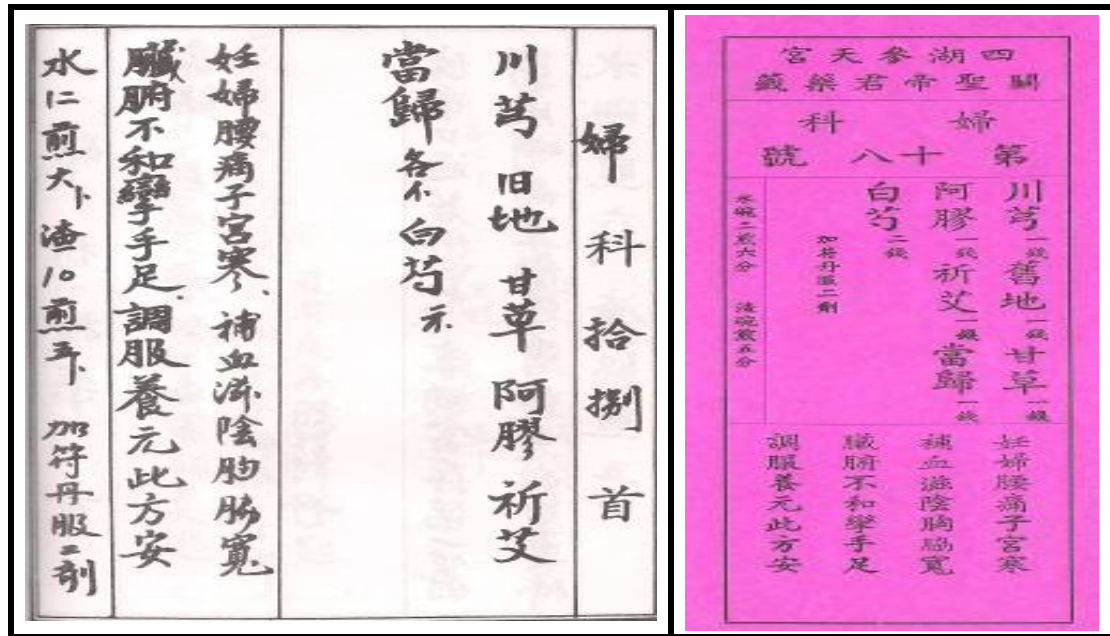 婦科拾捌首
川芎 旧地 甘草 阿膠 祈艾
當歸 各 白芍
妊婦腰痛子宮寒、補血滋陰胸脇寬
臟腑不和攣手足、調服養元此方安
水仁煎 渣10煎 加符丹服二剤
四湖參天宮
關聖帝君藥籤
婦科
第十八號
川芎一錢 舊地一錢 甘草一錢
阿膠一錢 祈艾一錢 當歸一錢
白芍二錢
加符丹服二劑
水碗二煎六分 渣碗煎五分
妊婦腰痛子宮寒
補血滋陰胸脇寬
臟腑不和攣手足
調服養元此方安